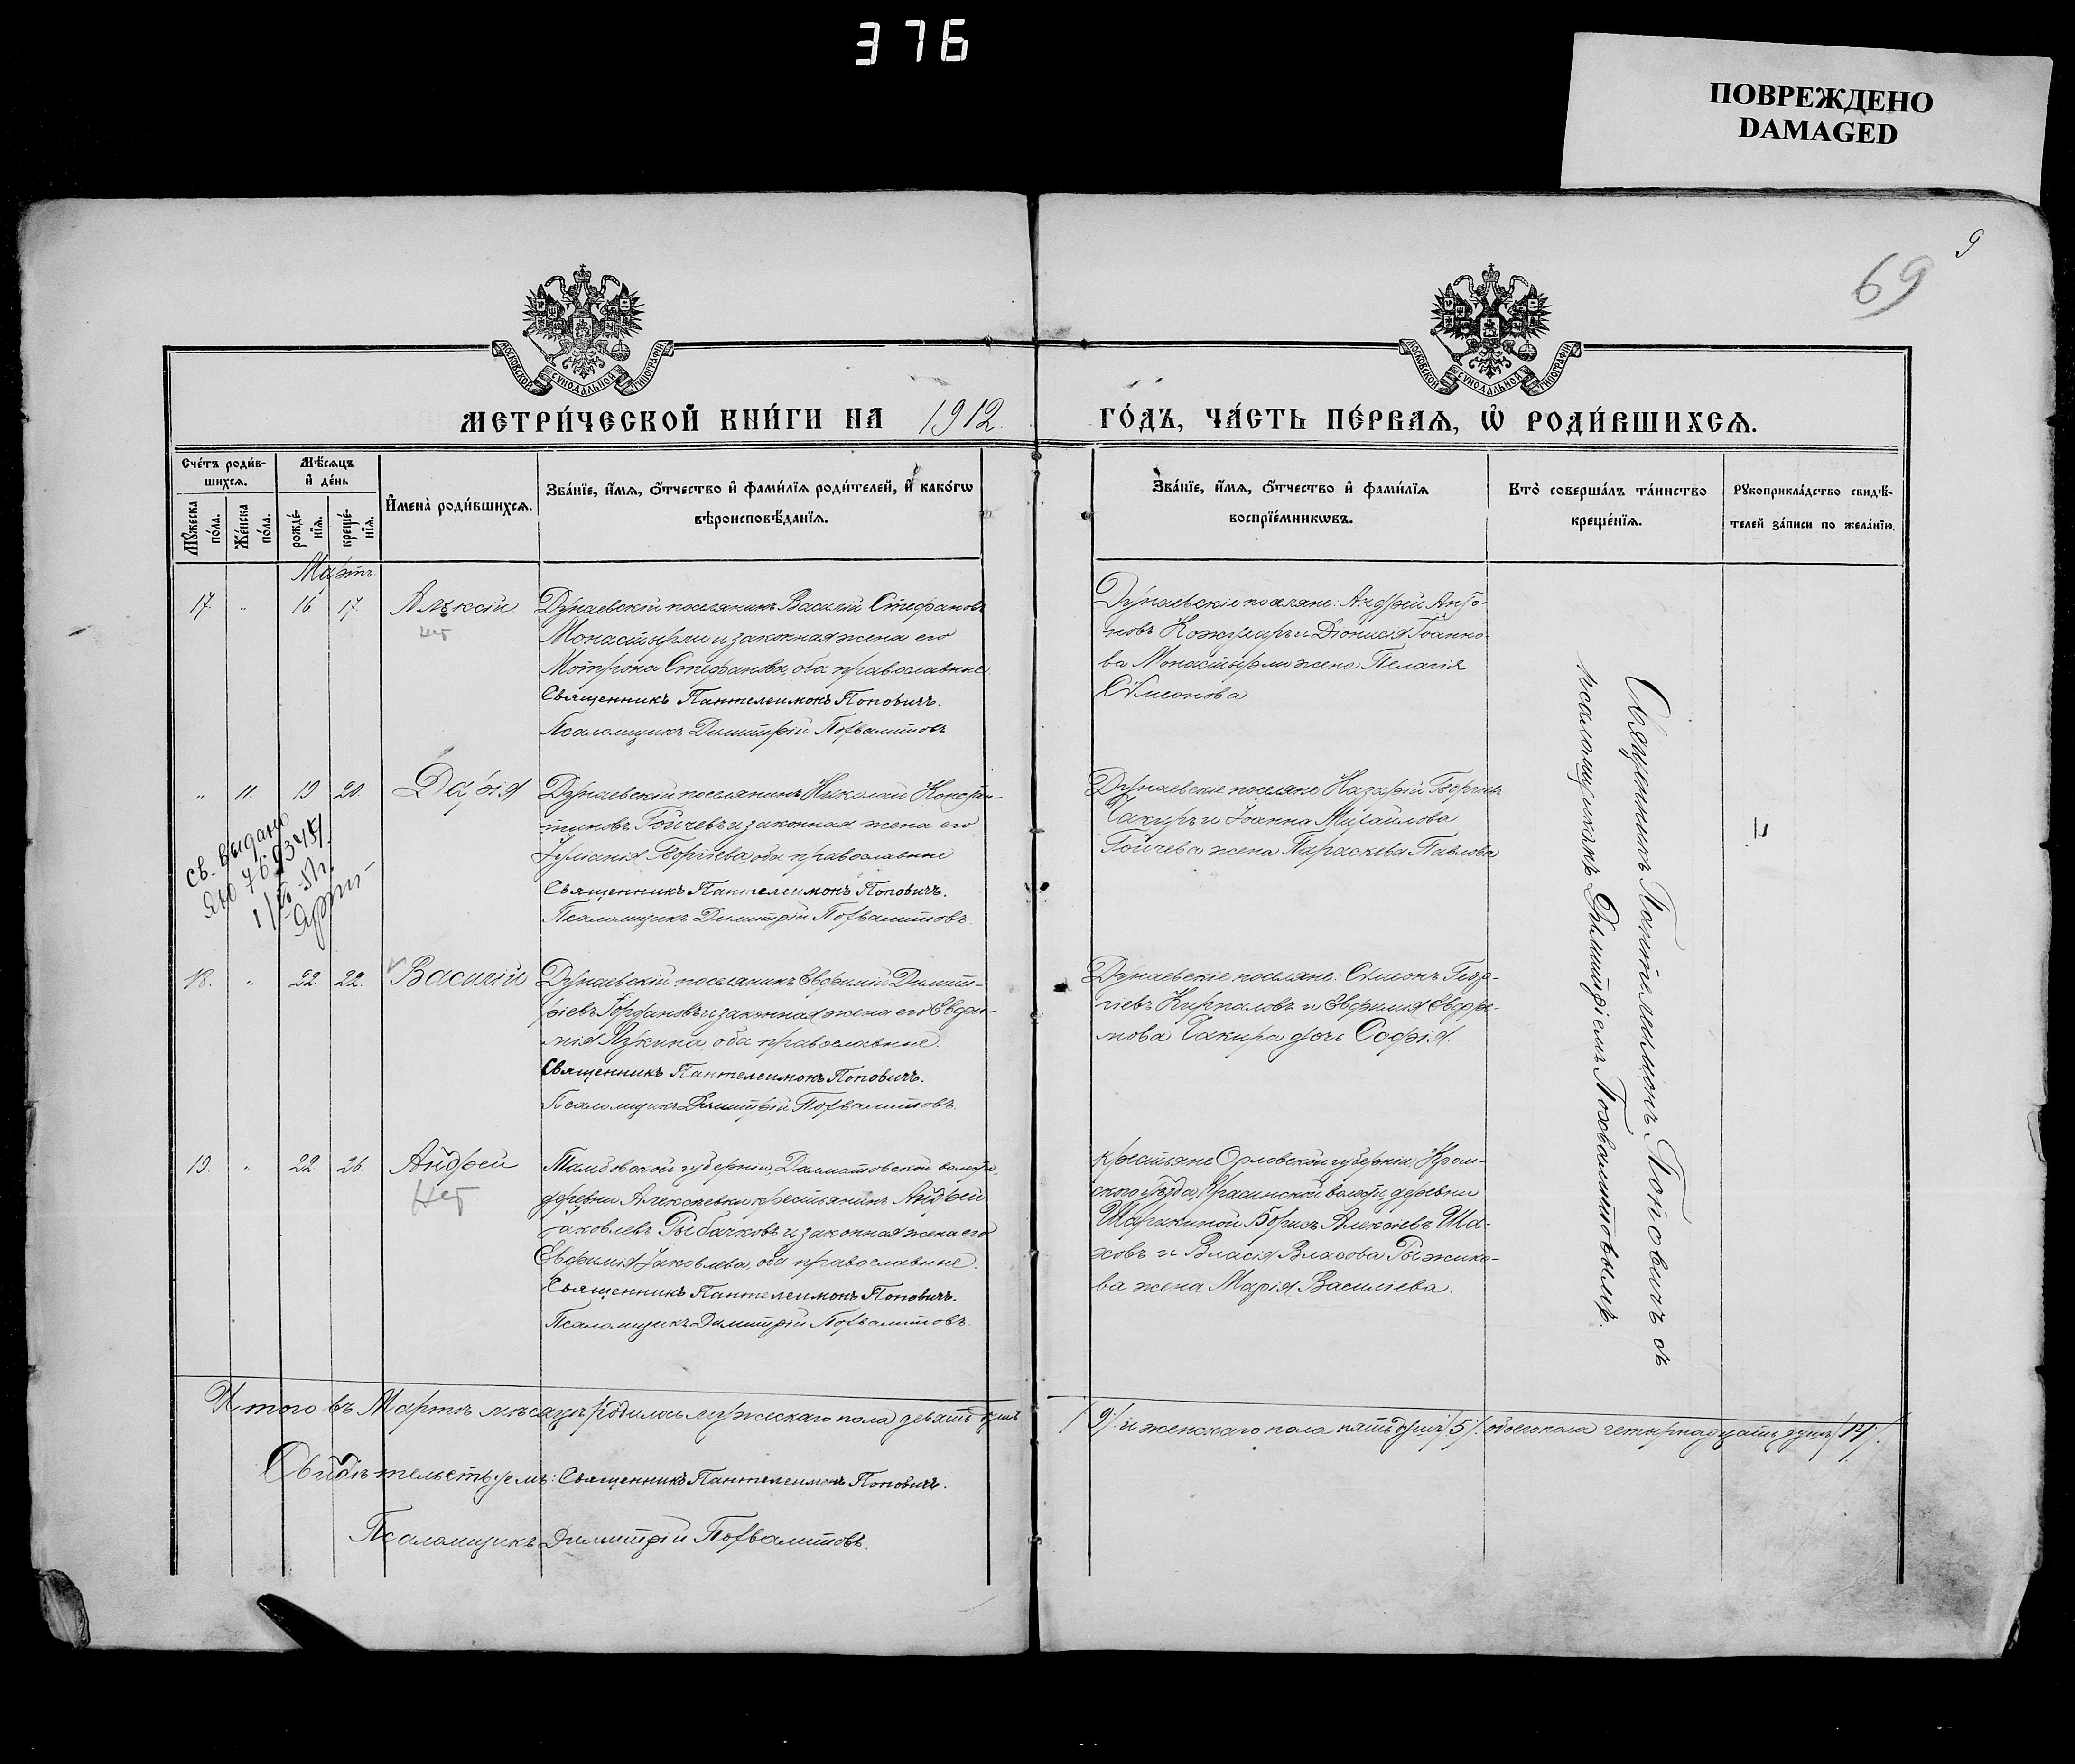 376
ПОВРЕЖДЕНО
DAMAGED
9
69
МОСКОВСКОЙ СѴНОДАЛЬНОЙ ТИПОГРАФІИ
МОСКОВСКОЙ СѴНОДАЛЬНОЙ ТИПОГРАФІИ
МЕТРИ́ЧЕСКОЙ КНИ́ГИ НА 1912. ГО́ДЪ, ЧА́СТЬ ПЕ́РВАѦ, Ѡ҆ РОДИ́ВШИХСѦ.
Сче́тъ роди́в-
шихсѧ.
Мѣ́сѧцъ
и҆ де́нь
Мꙋ́жеска
по́ла.
Же́нска
по́ла.
рожде́-
нїѧ.
креще́-
нїѧ.
И҆мена̀ роди́вшихсѧ.
Зва́нїе, и҆́мѧ, ѻ҆́тчество и҆ фами́лїѧ роди́телей, и҆ како́гѡ
вѣроисповѣ́данїѧ.
Зва́нїе, и҆́мѧ, ѻ҆́тчество и҆ фами́лїѧ
воспрїе́мникѡвъ.
Кто̀ соверша́лъ та́инство
креще́нїѧ.
Рꙋкоприкла́дство свидѣ́-
телей за́писи по жела́нїю.
Мартъ
17. „ 16 17. Алексій
нет
Дунаевскій поселянинъ Василій Стефановъ
Монастырли и законная жена его
Мотрона Стефанова, оба православные.
Священникъ Пантелеимонъ Поповичъ.
Псаломщикъ Димитрій Похвалитовъ
Дунаевскіе поселяне: Андрей Анто-
новъ Кожухаръ и Діонисія Іоанно-
ва Монастырли жена Пелагія
Сѵмеонова
„ 11. 19 20. Дарія
св. выдано
Дунаевскій поселянинъ Николай Констан-
тиновъ Гойчевъ и законная жена его
Іуліанія Георгіева, оба православные
Священникъ Пантелеимонъ Поповичъ.
Псаломщикъ Димитрій Похвалитовъ.
Дунаевскіе поселяне Назарій Георгіевъ
Чакиръ и Іоанна Михайлова
Гойчева жена Параскева Павлова
18. „ 22. 22. Василій
Дунаевскій поселянинъ Евфимій Димит-
ріевъ Іордановъ и законная жена его Евфи-
мія Лукина оба православные.
Священникъ Пантелеимонъ Поповичъ.
Псаломщикъ Димитрій Похвалитовъ.
Дунаевскіе поселяне: Сѵмеонъ Геор-
гіевъ Кирпаловъ и Евфимія Евфи-
мова Чакира дочь Софія.
19. „ 22. 26. Андрей
нет
Тамбовской губерніи, Далматовской волости,
деревни Алексѣевки крестьянинъ Андрей
Іаковлевъ Рыбачковъ и законная жена его
Евфимія Іаковлева, оба православные.
Священникъ Пантелеимонъ Поповичъ.
Псаломщикъ Димитрій Похвалитовъ.
крестьяне Орловской губерніи, Кром-
ского уѣзда, волости, деревни
Шарыкиной Борисъ Алексѣевъ Ша-
ховъ и Власія Власова Рыжико-
ва жена Марія Василіева.
Священникъ Пантелеимонъ Поповичъ съ
псаломщикомъ Димитріемъ Похвалитовымъ.
Итого въ Мартѣ мѣсяцѣ родилось мужескаго пола девять душъ
/9/ и женскаго пола пять душъ /5/. обоего пола четырнадцать душъ /14/.
Свидѣтельствуемъ: Священникъ Пантелеимонъ Поповичъ.
Псаломщикъ Димитрій Похвалитовъ.